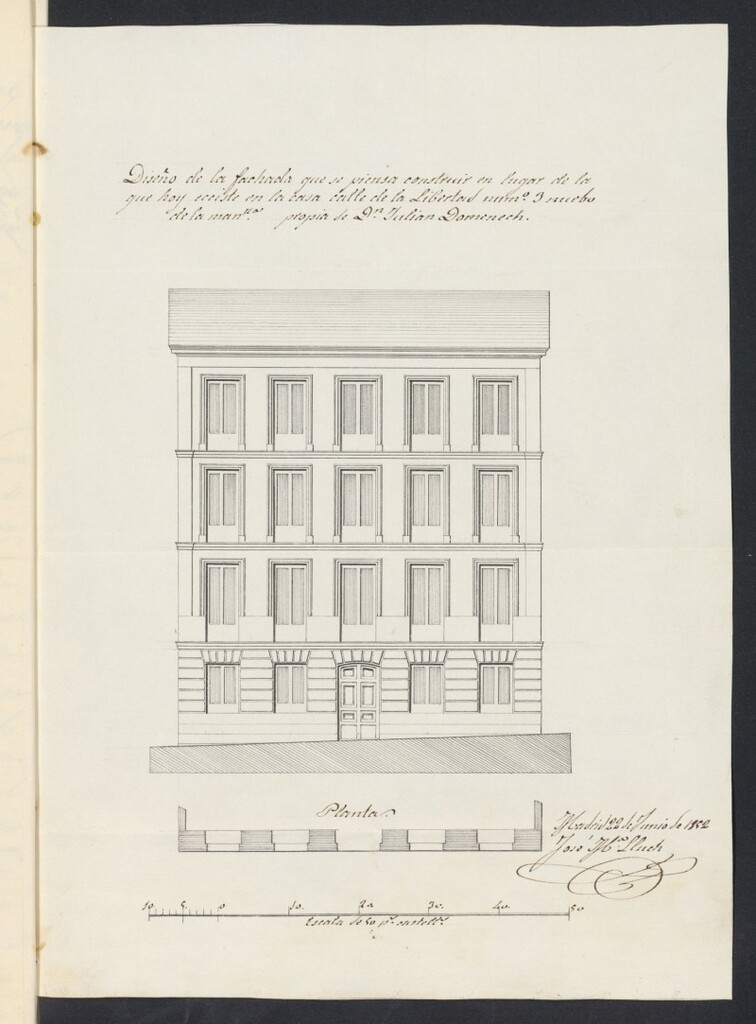 Diseño de la fachada que se piensa construir en lugar de la
que hoy ecsiste en la casa calle de la Libertad num.º 3 nuebo
de la man.ⁿᵃ propia de D.ⁿ Julian Domenech.
Planta.
Madrid 22 de Junio de 1852
José M.ª Lluch
10 5 0 10. 20 30. 40. 50
Escala de 50 p.ˢ castell.ˢ